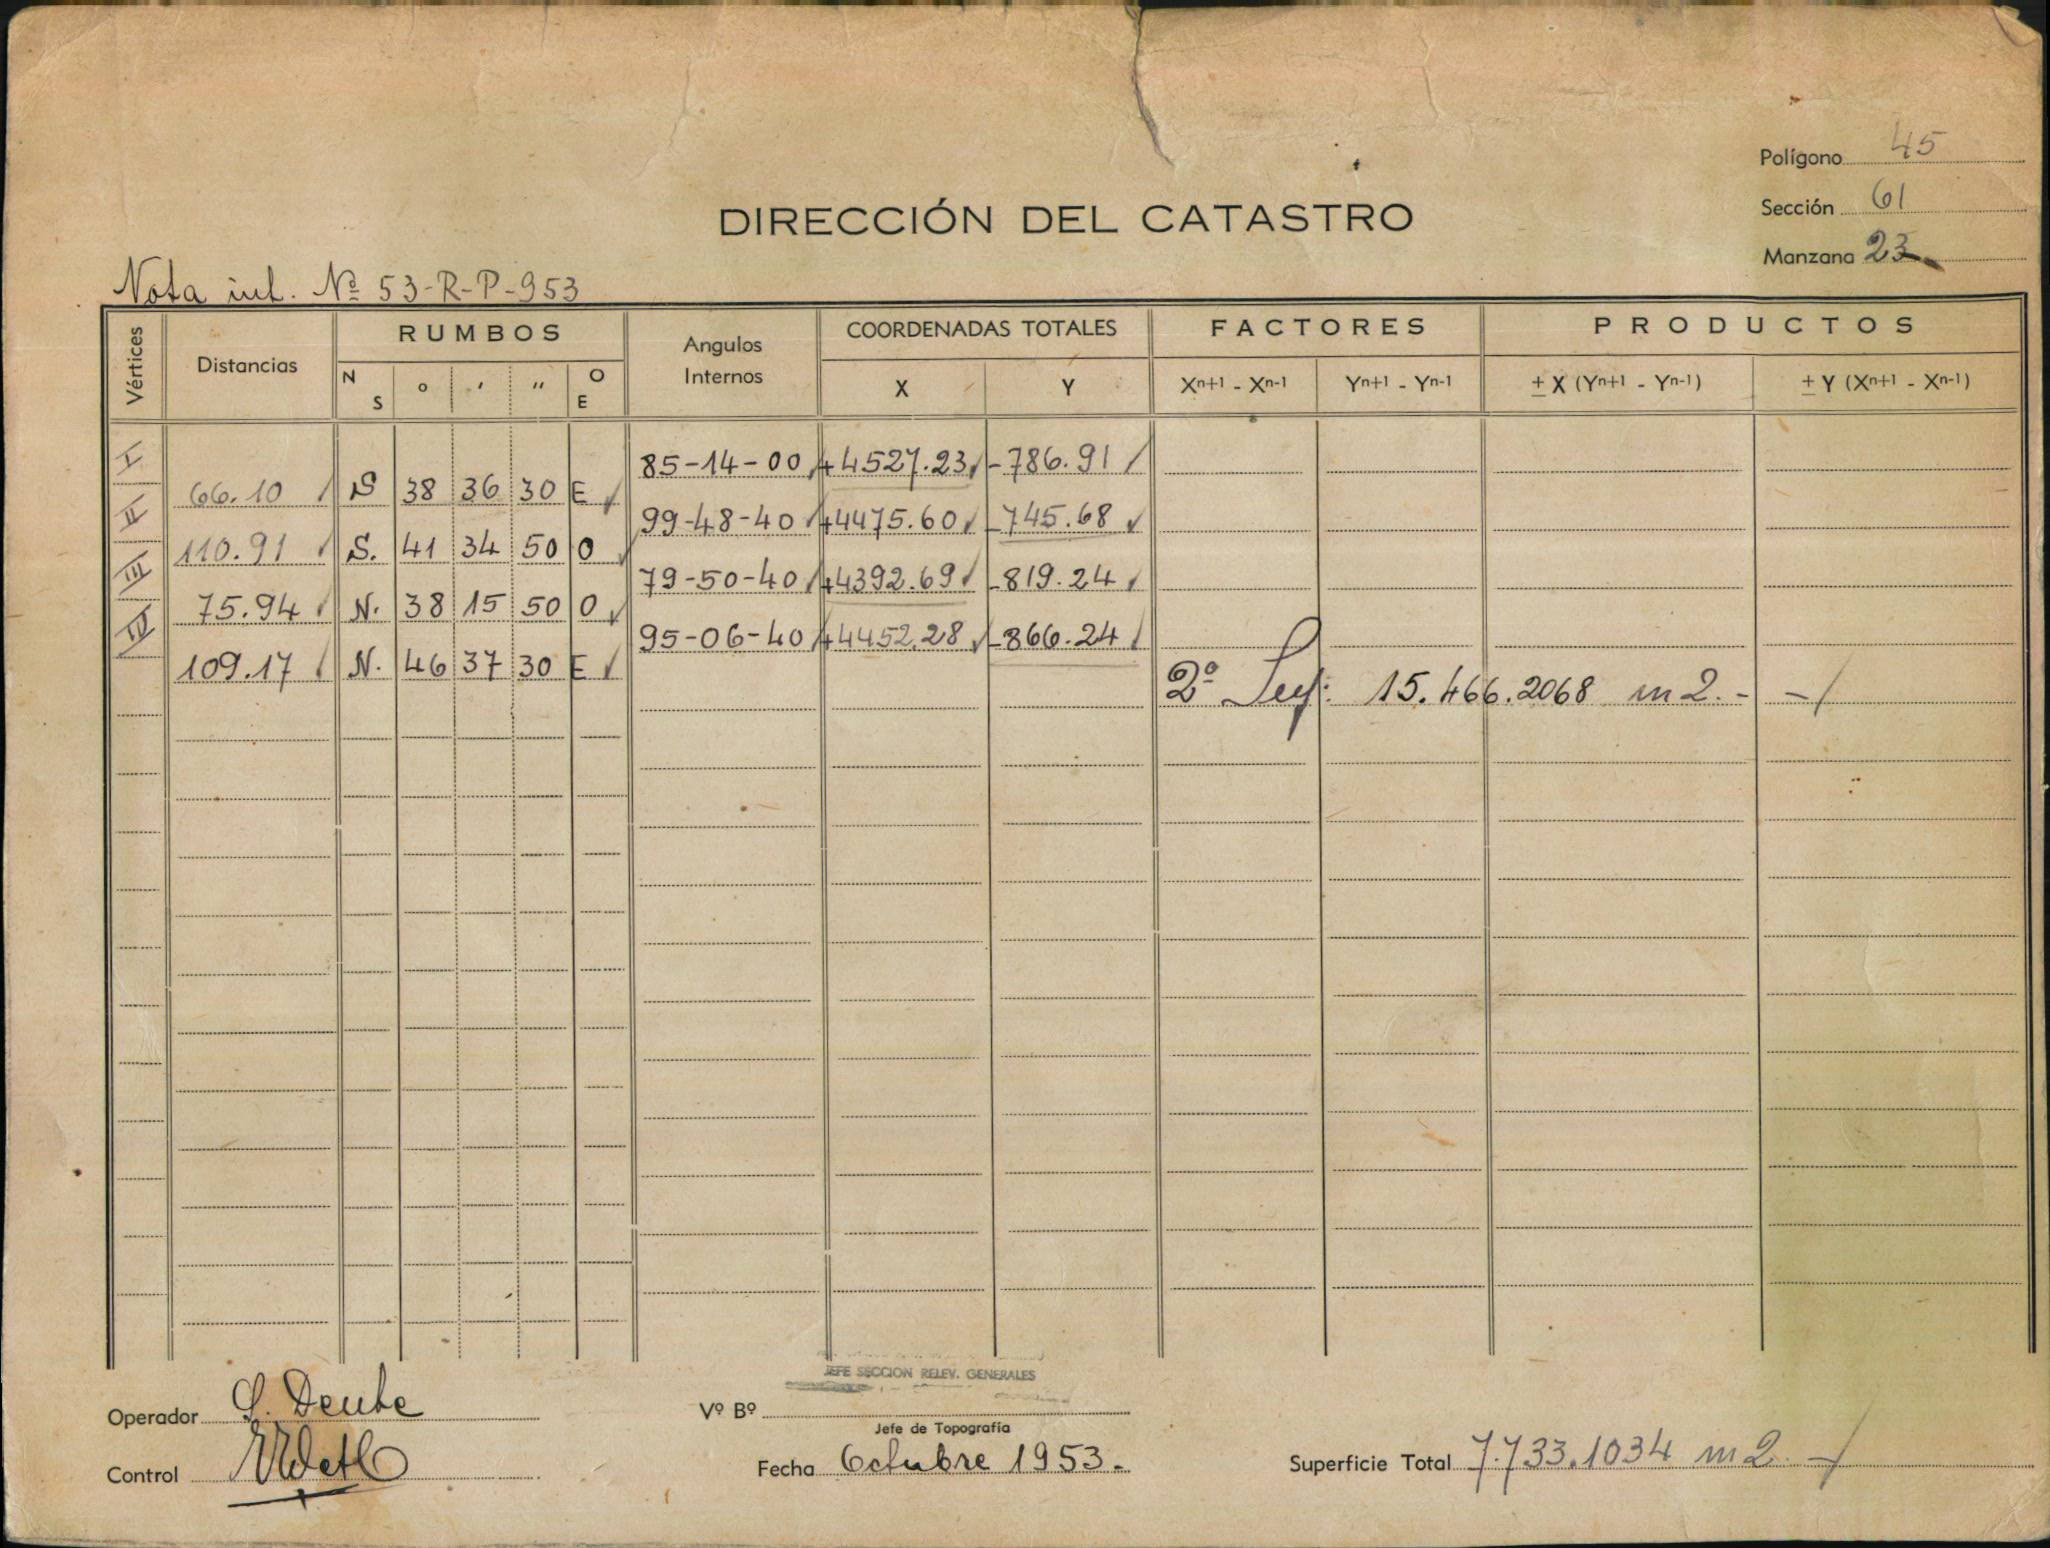 Polígono 45
Sección 61
DIRECCIÓN DEL CATASTRO
Manzana 23
Nota int. Nº 53-R-P-953
Vértices Distancias RUMBOS Angulos Internos COORDENADAS TOTALES FACTORES PRODUCTOS
N S o ′ ″ O E X Y Xn+1 - Xn-1 Yn+1 - Yn-1 ± X (Yn+1 - Yn-1) ± Y (Xn+1 - Xn-1)
I 85-14-00 +4527.23 -786.91
66.10 S 38 36 30 E
II 99-48-40 +4475.60 -745.68
110.91 S. 41 34 50 O
III 79-50-40 +4392.69 -819.24
75.94 N. 38 15 50 O
IV 95-06-40 +4452.28 -866.24
109.17 N. 46 37 30 E
2º Sup: 15.466.2068 m2.-
JEFE SECCION RELEV. GENERALES
Operador
Vº Bº
Jefe de Topografía
Control
Fecha Octubre 1953.-
Superficie Total 7.733.1034 m2.